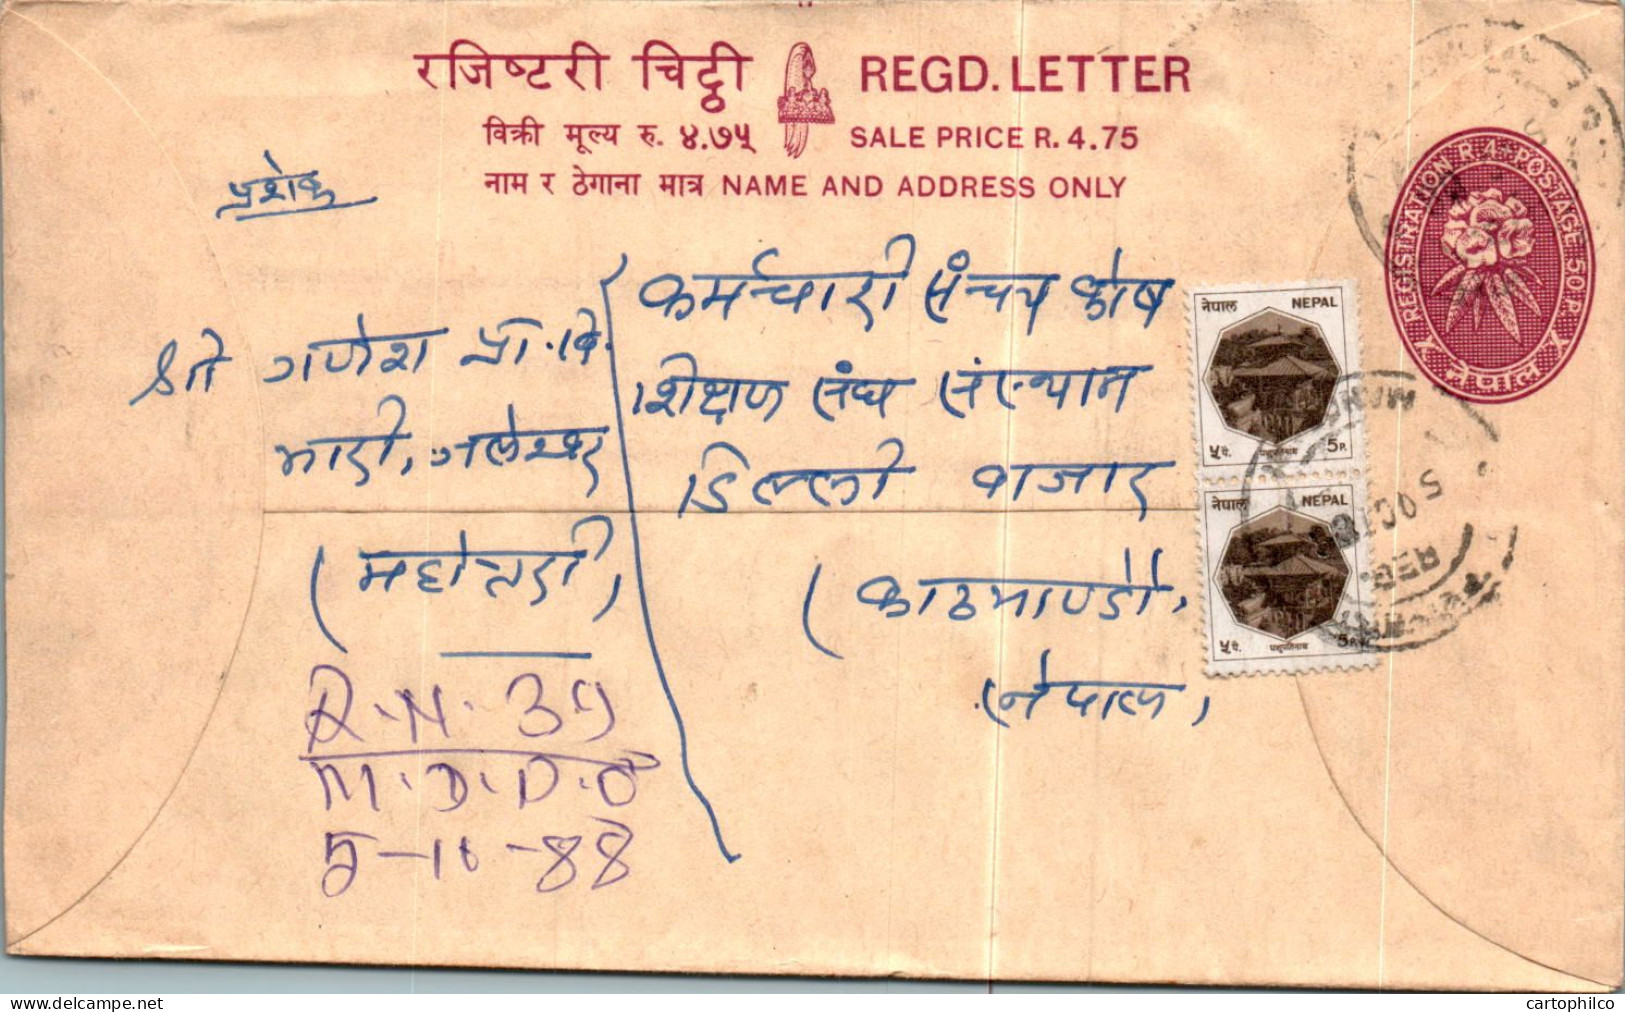 रजिष्टरी चिट्ठी REGD. LETTER
विक्री मूल्य रु. ४.७५ SALE PRICE R. 4.75
नाम र ठेगाना मात्र NAME AND ADDRESS ONLY
REGISTRATION R.4+POSTAGE 50P.
नेपाल
प्रशेक
श्री गणेश प्रा.वि.
भाडी, जलेश्वर
(महोत्तरी)
R.N. 39
M.D.D.O
5-10-88
कर्मचारी संचय कोष
शिक्षण संघ संस्थान
डिल्ली बजार
(काठमाण्डौ,
(नेपाल)
नेपाल NEPAL
५ पै. पशुपतिनाथ 5P.
नेपाल NEPAL
५ पै. पशुपतिनाथ 5P.
5 OCT 8
REG.
delcampe.net
cartophilco